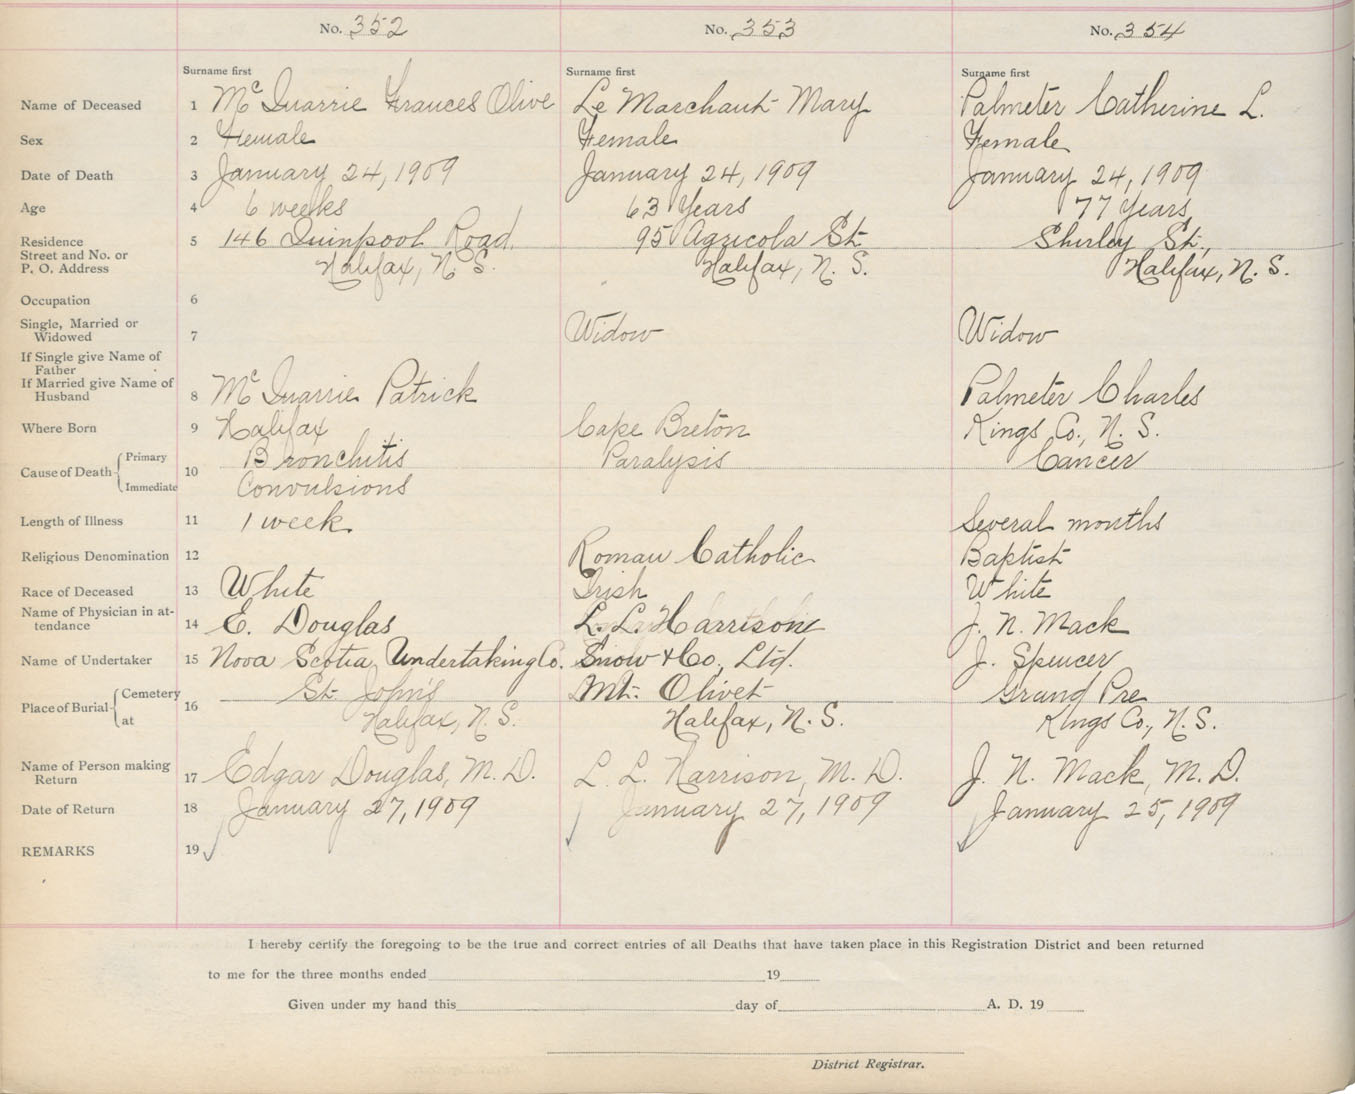 No. 352 No. 353 No. 354
Surname first Surname first Surname first
Name of Deceased 1 McQuarrie Frances Olive Le Marchant Mary Palmeter Catherine L.
Sex 2 Female Female Female
Date of Death 3 January 24, 1909 January 24, 1909 January 24, 1909
Age 4 6 weeks 63 Years 77 Years
Residence 5 146 Quinpool Road, 95 Agricola St. Shirley St.,
Street and No. or
P. O. Address Halifax, N. S. Halifax, N. S. Halifax, N. S.
Occupation 6
Single, Married or
Widowed 7 Widow Widow
If Single give Name of
Father
If Married give Name of
Husband 8 McQuarrie Patrick Palmeter Charles
Where Born 9 Halifax Cape Breton Kings Co., N. S.
Cause of Death Primary Bronchitis Paralysis Cancer
10
Immediate Convulsions
Length of Illness 11 1 week Several months
Religious Denomination 12 Roman Catholic Baptist
Race of Deceased 13 White Irish White
Name of Physician in at-
tendance 14 E. Douglas L. L. Harrison J. N. Mack
Name of Undertaker 15 Nova Scotia Undertaking Co. Snow & Co., Ltd. J. Spencer
Place of Burial Cemetery St. John's Mt. Olivet Grand Pre
16
at Halifax, N. S. Halifax, N. S. Kings Co., N. S.
Name of Person making
Return 17 Edgar Douglas, M. D. L. L. Harrison, M. D. J. N. Mack, M. D.
Date of Return 18 January 27, 1909 January 27, 1909 January 25, 1909
REMARKS 19
I hereby certify the foregoing to be the true and correct entries of all Deaths that have taken place in this Registration District and been returned
to me for the three months ended 19
Given under my hand this day of A. D. 19
District Registrar.